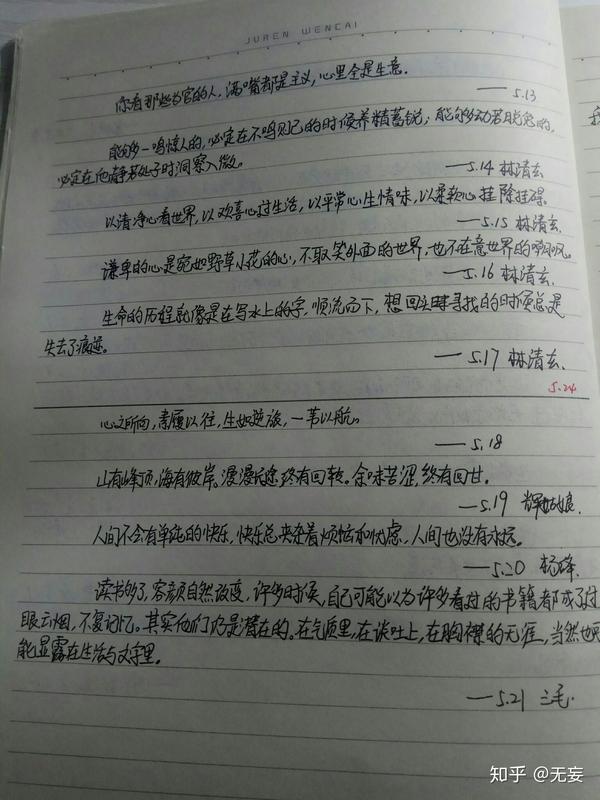 JUREN WENCAI
你看那些为官的人,满嘴都是主义,心里全是生意.
—— 5.13
能够一鸣惊人的,必定在不鸣则已的时候养精蓄锐;能够动若脱兔的,
必定在静若处子时洞察入微。
—5.14 林清玄
以清净心看世界,以欢喜心过生活,以平常心生情味,以柔软心挂除挂碍.
—5.15 林清玄.
谦卑的心是宛如野草小花的心,不取笑外面的世界,也不在意世界的嘲风。
—5.16 林清玄.
生命的历程就像是在写水上的字,顺流而下,想回头寻找的时候总是
失去了痕迹。
— 5.17 林清玄.
5.24
心之所向,素履以往,生如逆旅,一苇以航。
—— 5.18
山有峰顶,海有彼岸。漫漫长途,终有回转。余味苦涩,终有回甘。
—5.19 辉姑娘.
人间不会有单纯的快乐,快乐总夹杂着烦恼和忧虑,人间也没有永远。
—5.20 杨绛.
读书多了,容颜自然改变,许多时候,自己可能以为许多看过的书籍都成了过
眼云烟,不复记忆。其实他们仍是潜在的。在气质里,在谈吐上,在胸襟的无涯,当然也可
能显露在生活与文字里。
—5.21 三毛.
知乎 @无妄